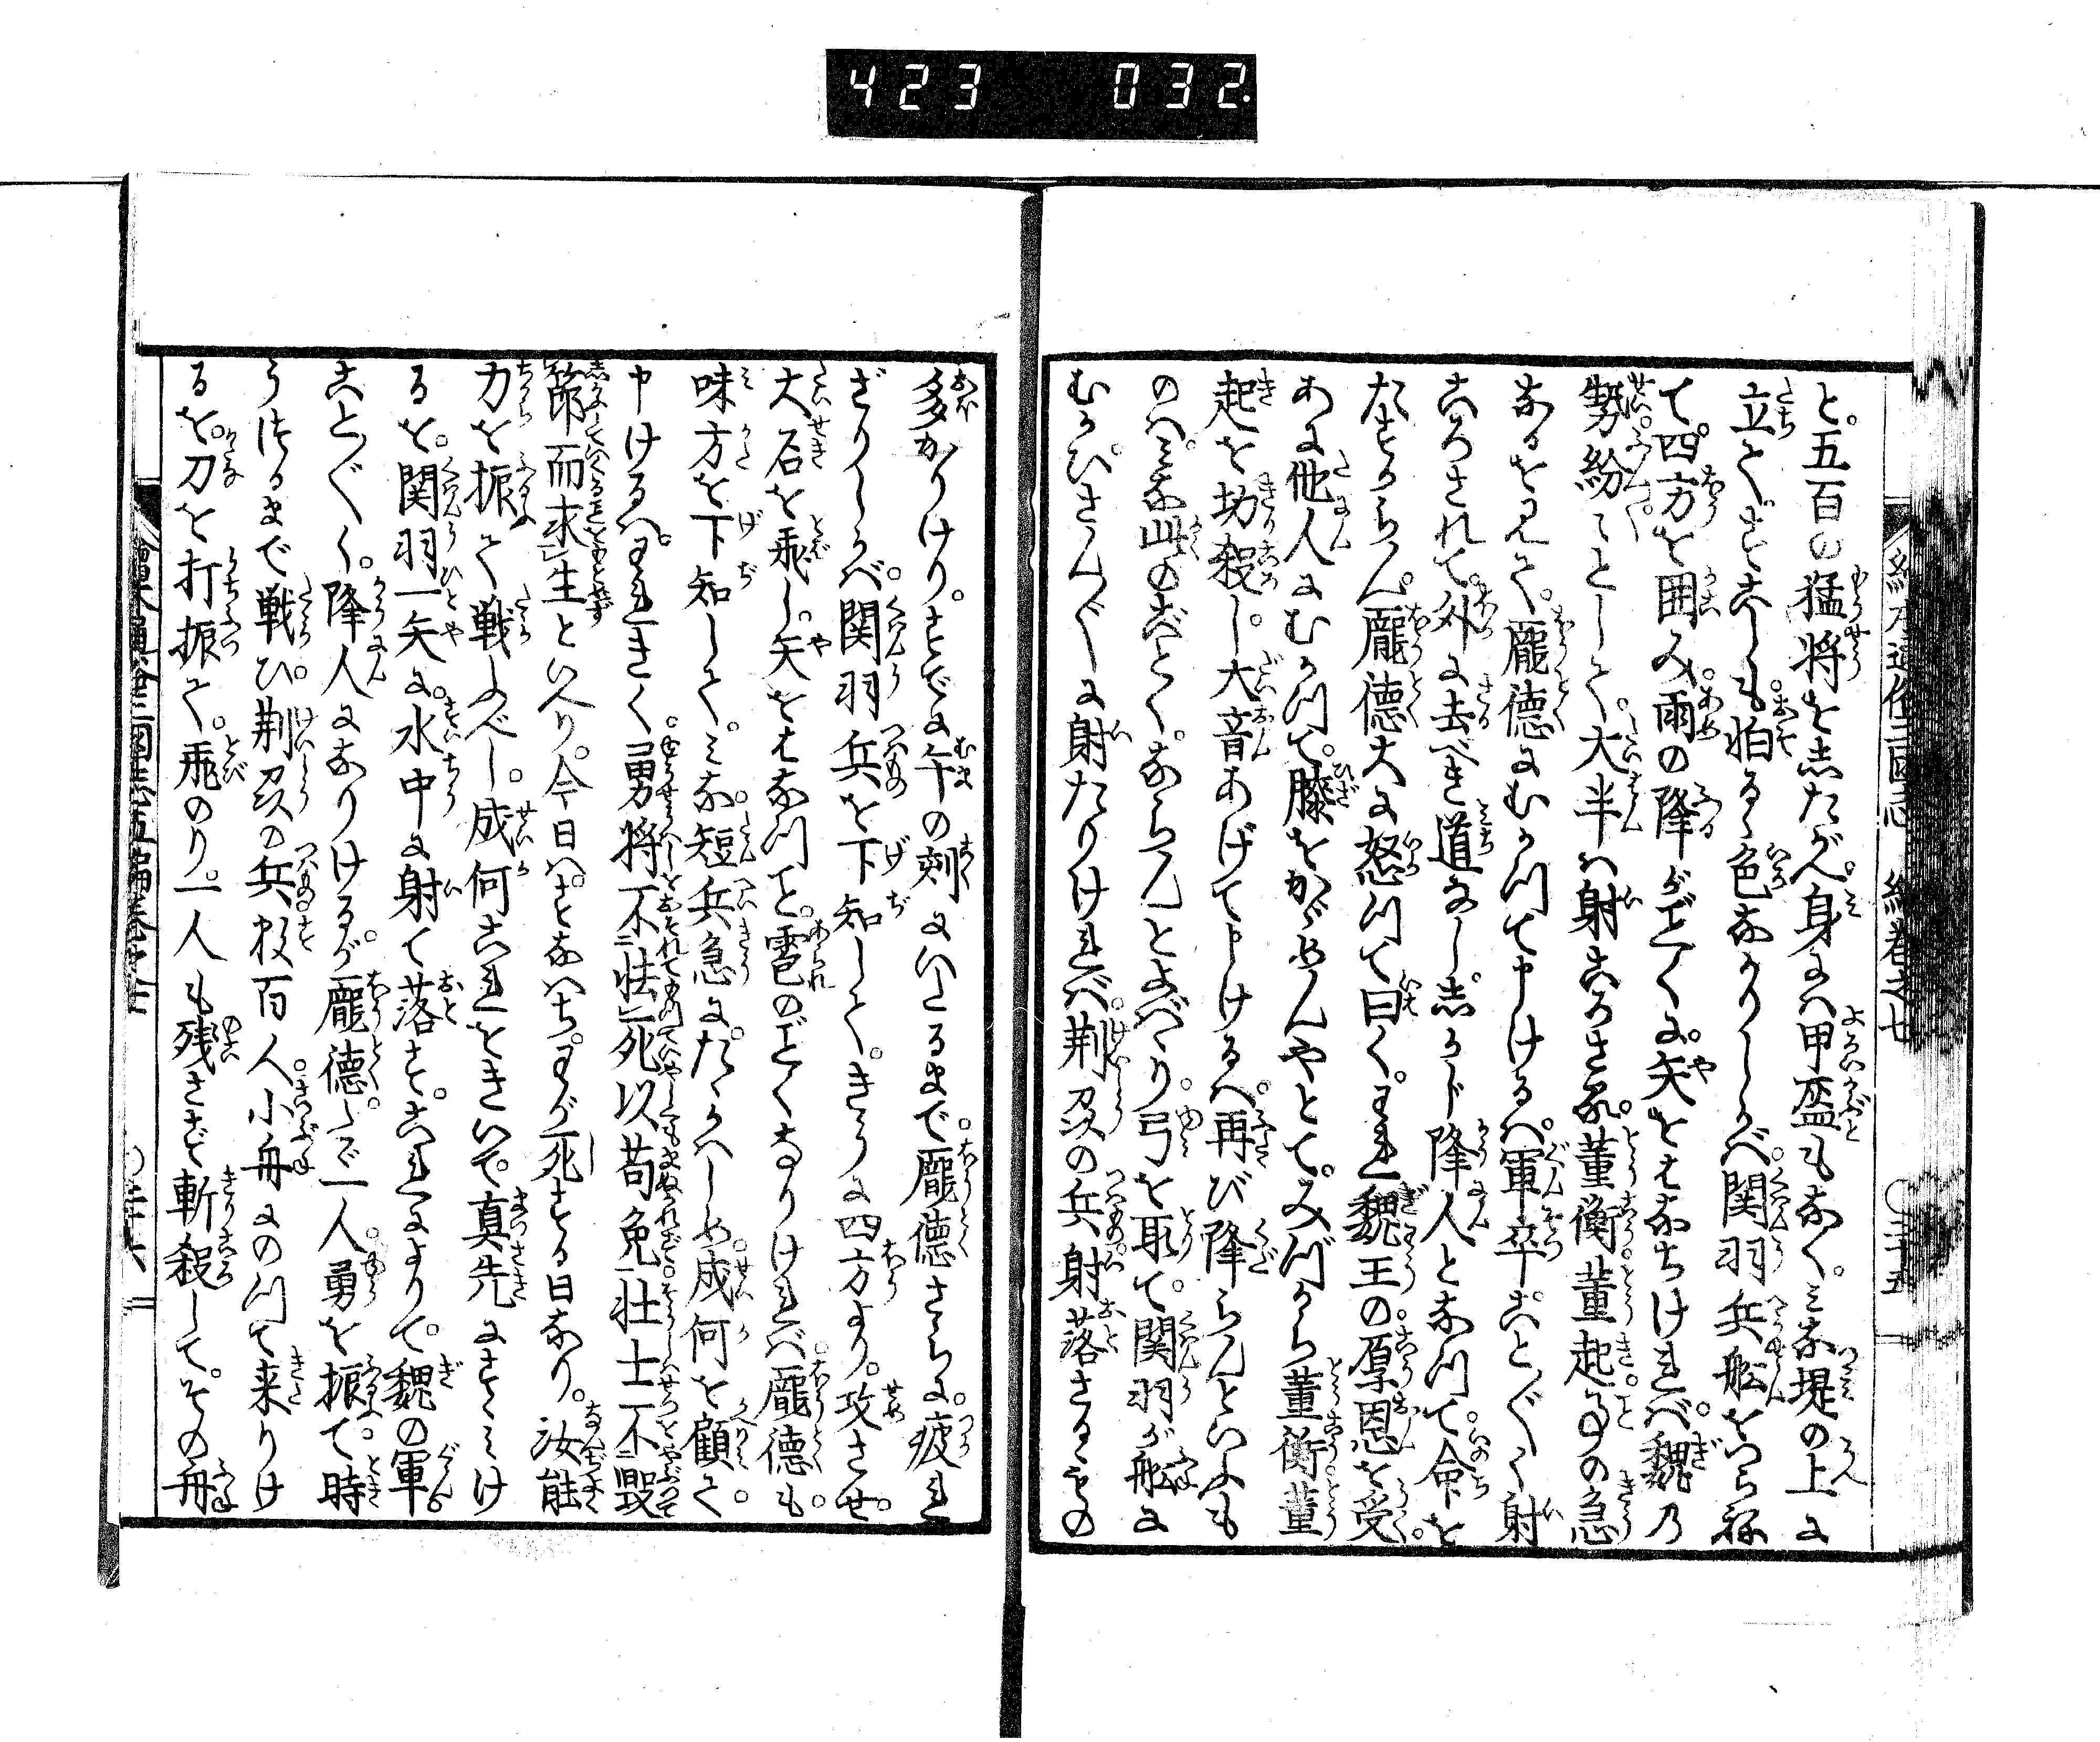 423 032.
と。五百の猛将を志たがへ。身には甲盔もなく。ミな堤の上に
立て。すこしも怕るゝ色なかりしかバ。関羽兵舩をつらね
て。四方を囲み。雨の降がごとくに。矢をはなちけれバ。魏乃
勢紛〻として。大半ハ射ころさる。董衡董起。事の急
なるを見て。龐徳にむかつて申けるハ。軍卒ことごとく射
ころされて。外に去べき道なし。志かじ降人となつて。命を
たすからん。龐徳大に怒つて曰く。われ魏王の厚恩を受。
あに他人にむかつて。膝をかゞめんやとて。みづから董衡董
起を切殺し。大音あげて申けるハ。再び降らんといふも
のハ。ミな此のごとく。ならんとよバゝり。弓を取て。関羽が舩に
むかひ。さんざんに射たりけれバ。荊州の兵射落さるゝもの
多かりけり。すでに午の刻にいたるまで。龐徳さらに。疲れ
ざりしかバ。関羽兵を下知して。きうに四方より。攻させ。
大石を飛し。矢をはなつこと。雹のごとくなりけれバ。龐徳も。
味方を下知して。ミな。短兵急に。たゝかハしめ。成何を顧て。
申けるハ。われきく。勇将不怯死以苟免。壮士不毀
節而求生といへり。今日ハ。すなハち。わが死する日なり。汝能
力を振て戦ふべし。成何これをきいて。真先にすゝミけ
るを。関羽一矢に。水中に射て落す。これによりて。魏の軍
ことごとく。降人になりけるが。龐徳。たゞ一人。勇を振て。時
うつるまで戦ひ。荊州の兵数百人。小舟にのつて来りけ
るを。刀を打振て。飛のり。一人も残さず斬殺して。その舟